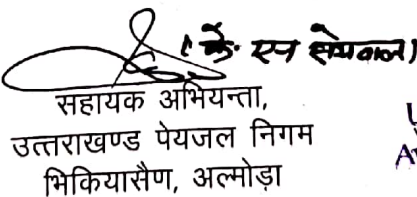 (के. एन सेमवाल)
सहायक अभियन्ता,
उत्तराखण्ड पेयजल निगम
भिकियासैण, अल्मोड़ा